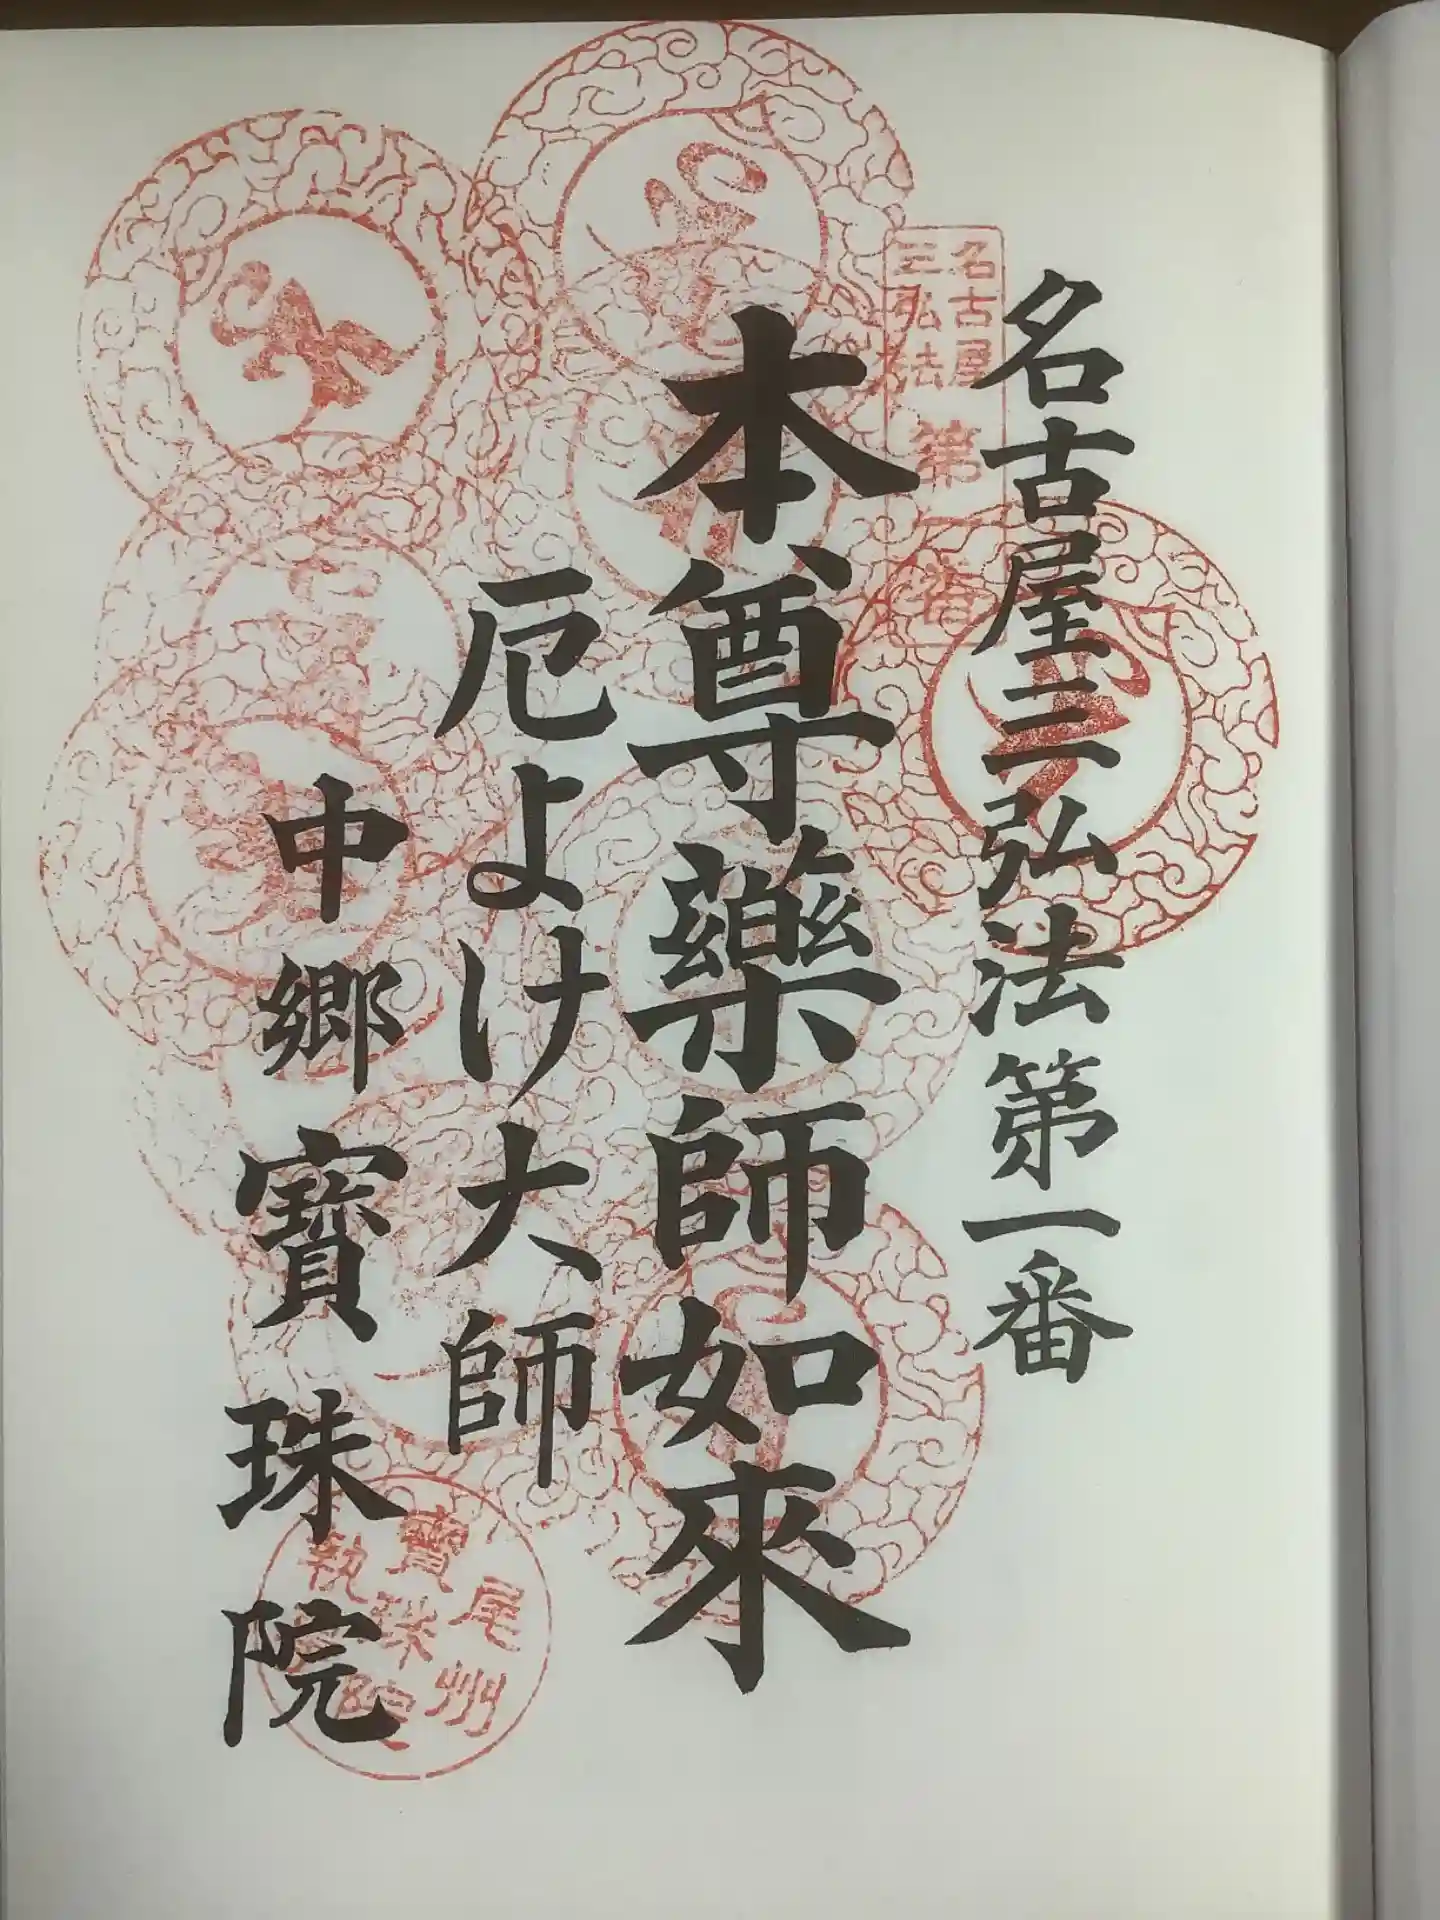 名古屋三弘法第一番
本尊藥師如來
厄よけ大師
中郷寶珠院
名古屋
三弘法
第
番
尾州
寶珠院
執